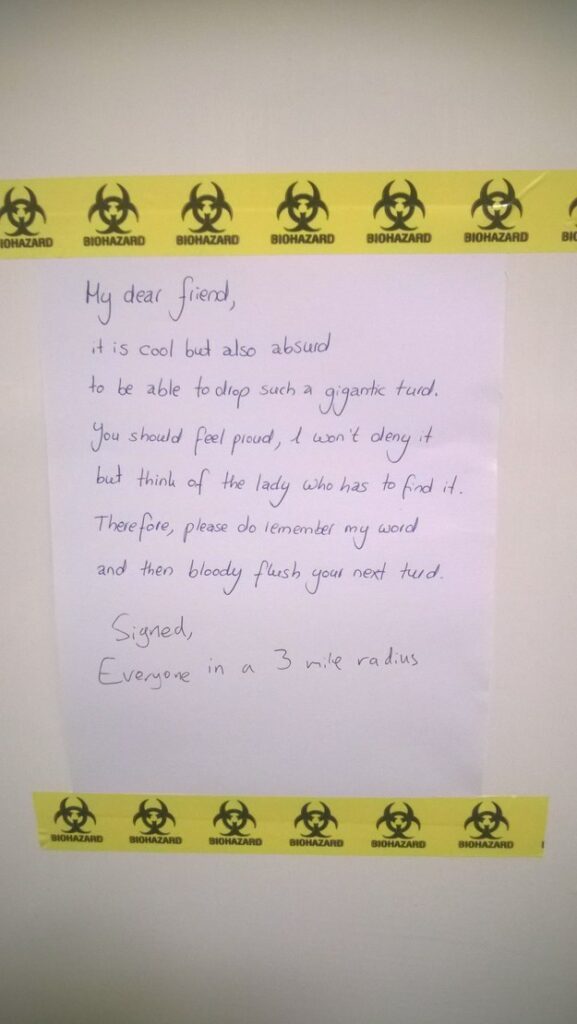 BIOHAZARD BIOHAZARD BIOHAZARD BIOHAZARD BIOHAZARD BIOHAZARD
My dear friend,
it is cool but also absurd
to be able to drop such a gigantic turd.
You should feel proud, I won't deny it
but think of the lady who has to find it.
Therefore, please do remember my word
and then bloody flush your next turd.
Signed,
Everyone in a 3 mile radius
BIOHAZARD BIOHAZARD BIOHAZARD BIOHAZARD BIOHAZARD BIOHAZARD